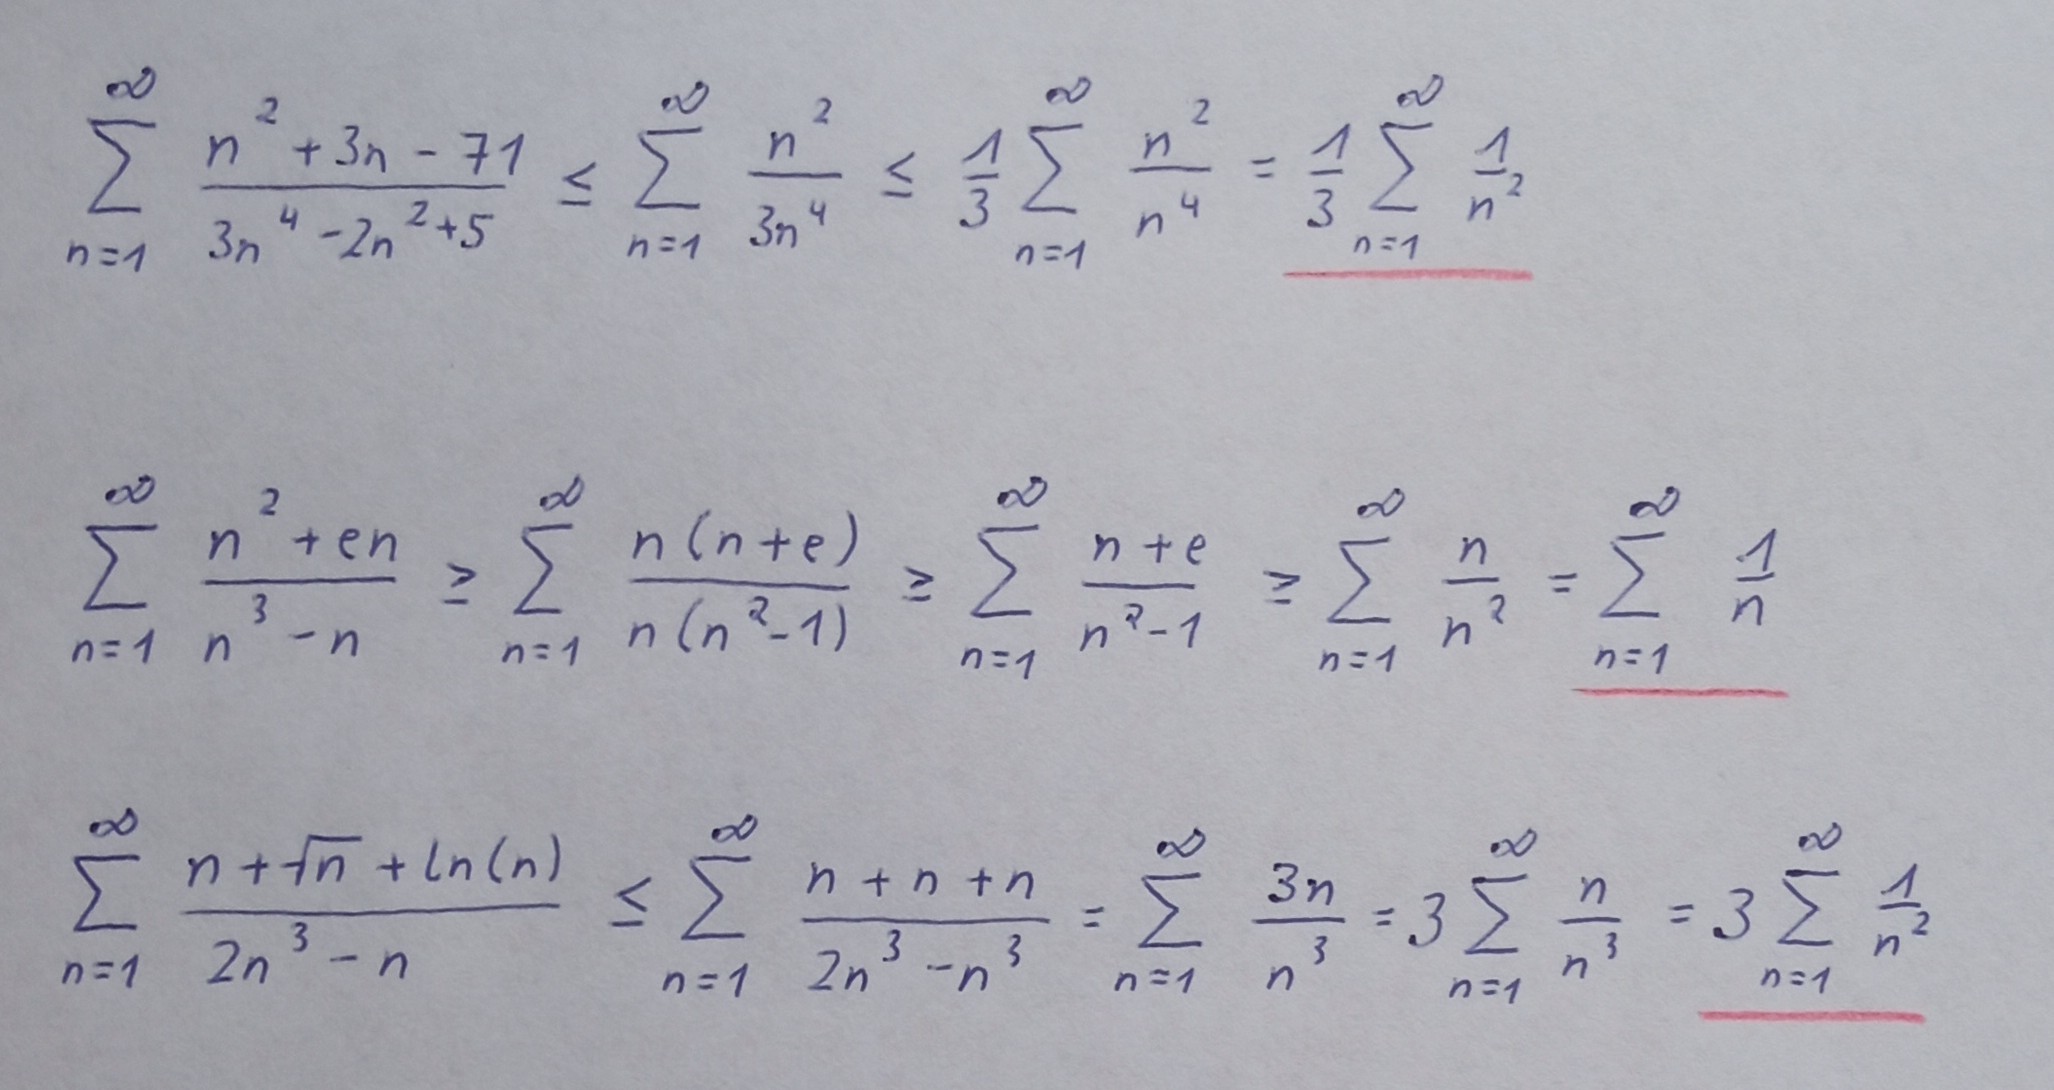 ∑_{n=1}^{∞} (n² + 3n - 71)/(3n⁴ - 2n² + 5) ≤ ∑_{n=1}^{∞} n²/(3n⁴) ≤ 1/3 ∑_{n=1}^{∞} n²/n⁴ = 1/3 ∑_{n=1}^{∞} 1/n²
∑_{n=1}^{∞} (n² + en)/(n³ - n) ≥ ∑_{n=1}^{∞} (n(n+e))/(n(n²-1)) ≥ ∑_{n=1}^{∞} (n+e)/(n²-1) ≥ ∑_{n=1}^{∞} n/n² = ∑_{n=1}^{∞} 1/n
∑_{n=1}^{∞} (n + √n + ln(n))/(2n³ - n) ≤ ∑_{n=1}^{∞} (n + n + n)/(2n³ - n³) = ∑_{n=1}^{∞} 3n/n³ = 3 ∑_{n=1}^{∞} n/n³ = 3 ∑_{n=1}^{∞} 1/n²